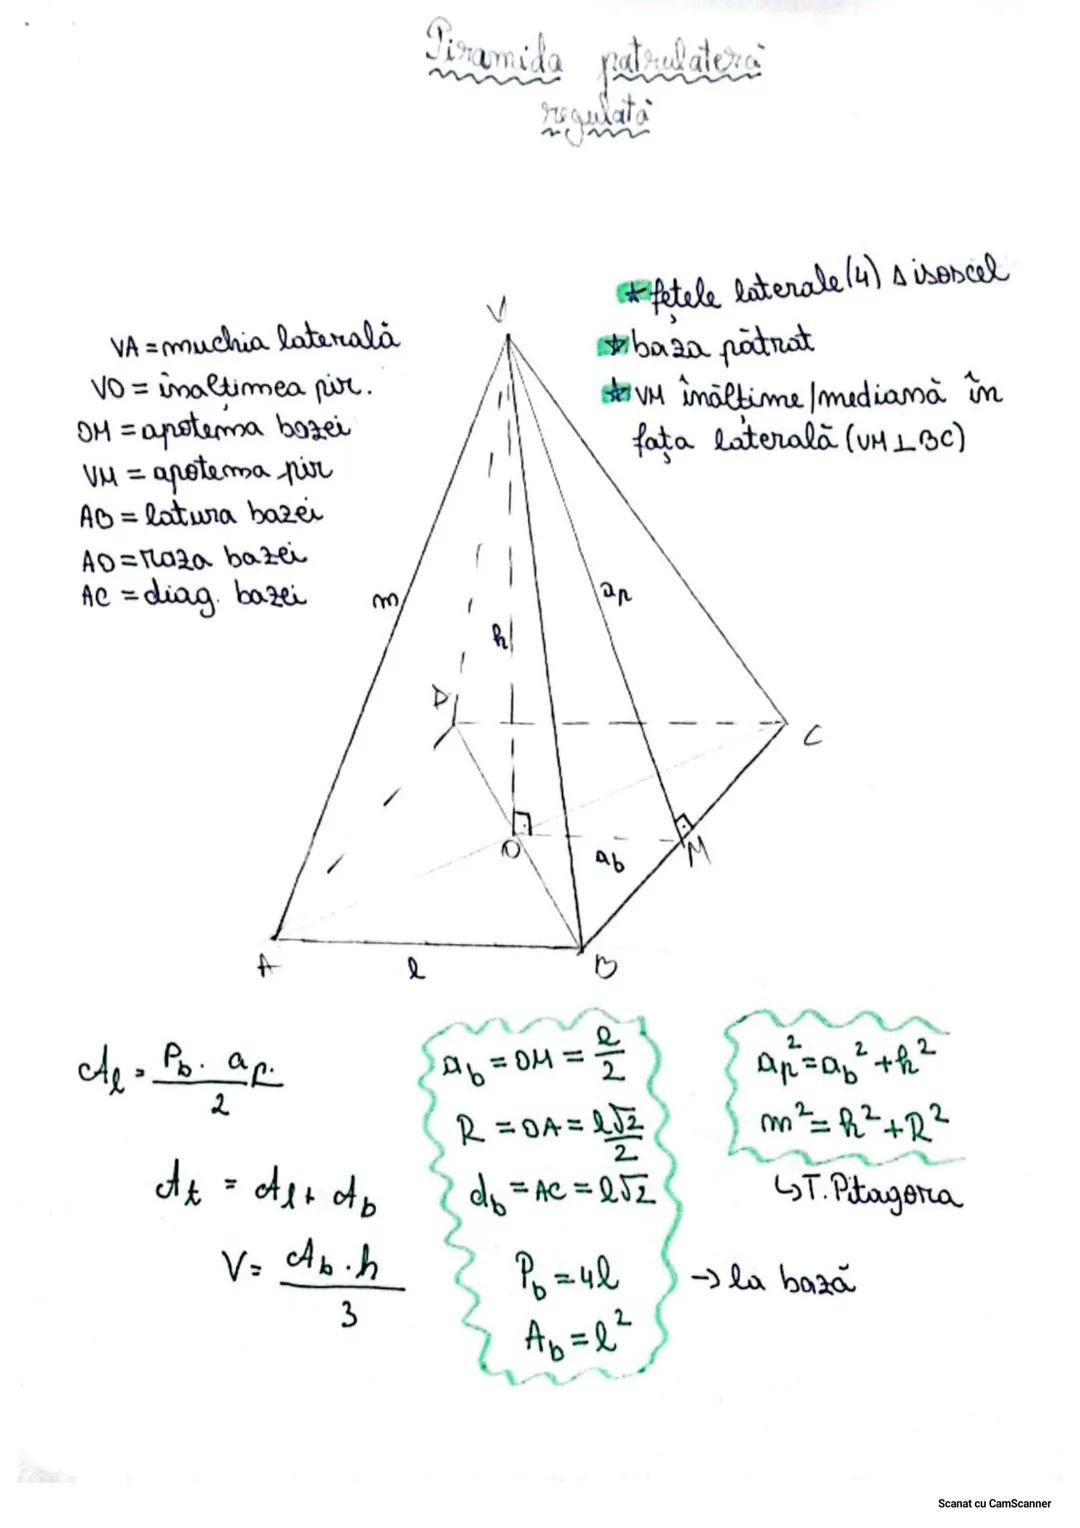 Piramida patrulateră
regulată
VA = muchia laterală
VO = înălțimea pir.
OM = apotema bazei
VM = apotema pir
AB = latura bazei
AO = raza bazei
AC = diag. bazei
* fețele laterale (4) Δ isoscel
* baza pătrat
* VM înălțime/mediană în
fața laterală (VM ⊥ BC)
V
m
h
ap
D
C
O
ab
M
A
l
B
Al = Pb · ap. / 2
At = Al + Ab
V = Ab · h / 3
ab = OM = l/2
R = OA = l√2/2
db = AC = l√2
Pb = 4l
Ab = l²
→ la bază
ap² = ab² + h²
m² = h² + R²
↳ T. Pitagora
Scanat cu CamScanner